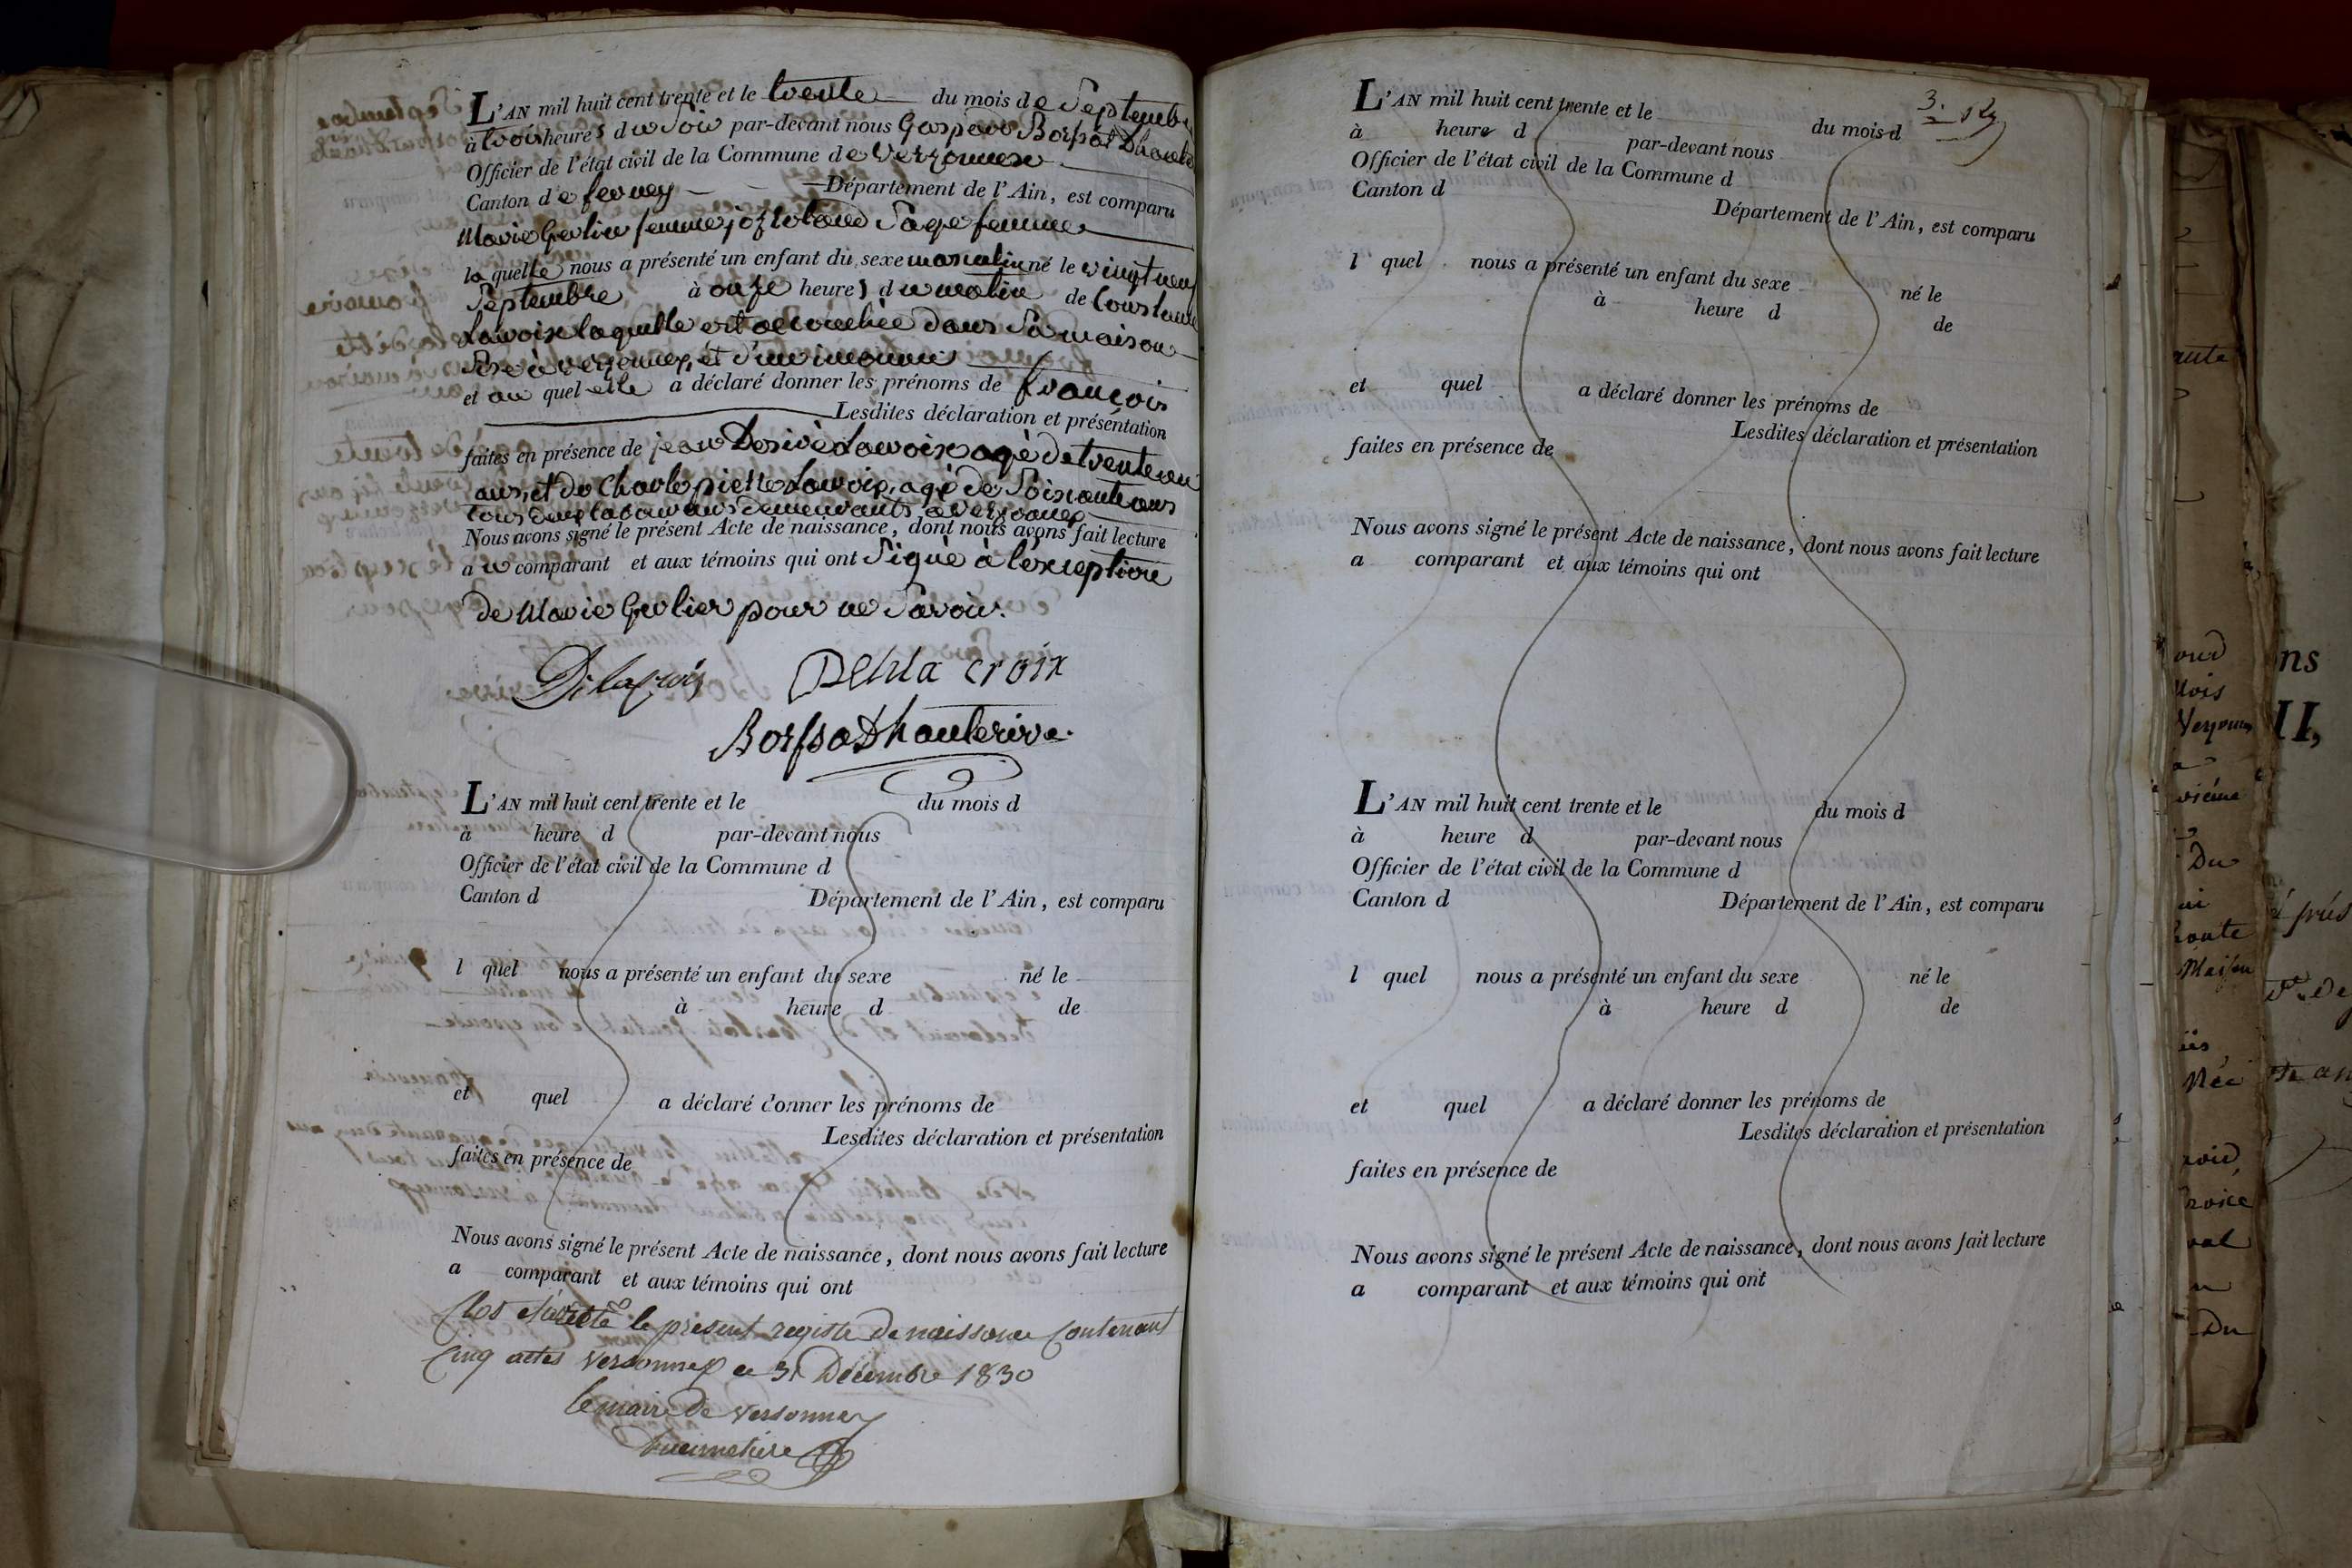 L'AN mil huit cent trente et le trente du mois de Septembre
à trois heures du Soir par-devant nous Gaspard Borssat Dhaute
Officier de l'état civil de la Commune de Versonnex
Canton de ferney Département de l'Ain, est comparu
Marie Gerlier femme Sage femme
laquelle nous a présenté un enfant du sexe masculin né le vingt neuf
Septembre à onze heures du matin de Constance
Lacroix laquelle est accouchée dans Sa maison
Sise à versonnex, et d'un inconnu
et au quel elle a déclaré donner les prénoms de françois
Lesdites déclaration et présentation
faites en présence de jean Desiré Lacroix agé de trente un
ans, et de Charle piette Lacroix, agé de Soixante ans
tous deux laboureurs demeurants a versonnex
Nous avons signé le présent Acte de naissance, dont nous avons fait lecture
a u comparant et aux témoins qui ont Signé à l'exception
de Marie Gerlier pour ne Savoir.
Delacroix Delila croix
Borssat Dhauterive
L'AN mil huit cent trente et le du mois d
à heure d par-devant nous
Officier de l'état civil de la Commune d
Canton d Département de l'Ain, est comparu
l quel nous a présenté un enfant du sexe né le
à heure d de
et quel a déclaré donner les prénoms de
Lesdites déclaration et présentation
faites en présence de
Nous avons signé le présent Acte de naissance, dont nous avons fait lecture
a comparant et aux témoins qui ont
Clos et arrêté le présent registre de naissance Contenant
Cinq actes Versonnex ce 31 Décembre 1830
le maire de Versonnex
Ducimetière
L'AN mil huit cent trente et le du mois d
à heure d par-devant nous
Officier de l'état civil de la Commune d
Canton d
Département de l'Ain, est comparu
l quel nous a présenté un enfant du sexe né le
à heure d de
et quel a déclaré donner les prénoms de
Lesdites déclaration et présentation
faites en présence de
Nous avons signé le présent Acte de naissance, dont nous avons fait lecture
a comparant et aux témoins qui ont
L'AN mil huit cent trente et le du mois d
à heure d par-devant nous
Officier de l'état civil de la Commune d
Canton d Département de l'Ain, est comparu
l quel nous a présenté un enfant du sexe né le
à heure d de
et quel a déclaré donner les prénoms de
Lesdites déclaration et présentation
faites en présence de
Nous avons signé le présent Acte de naissance, dont nous avons fait lecture
a comparant et aux témoins qui ont